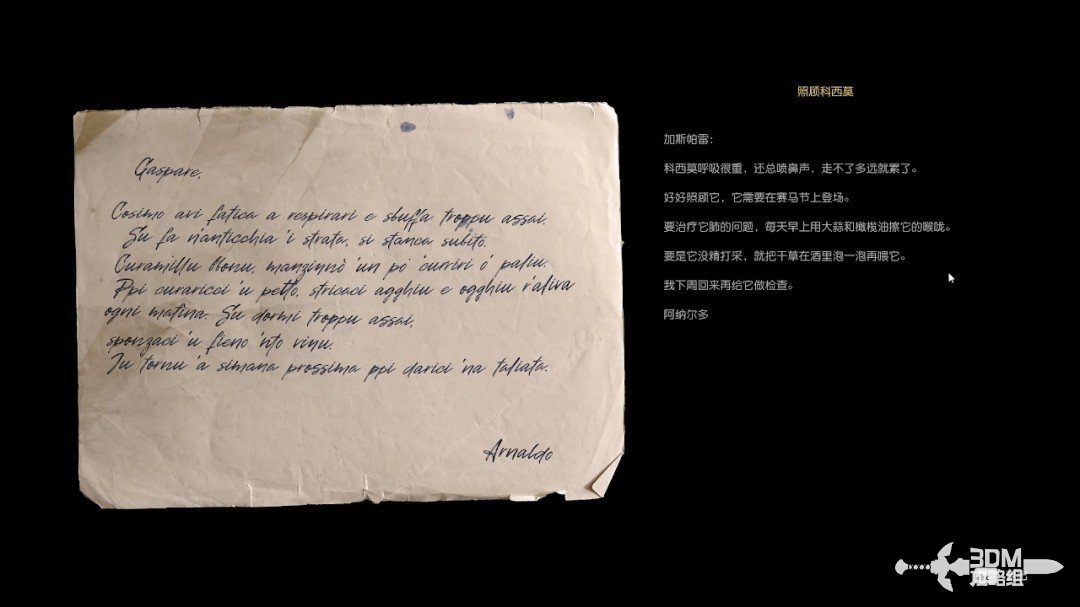 Gaspare,
Cosimo avi fatica a respirari e sbuffa troppu assai.
Su fa n'anticchia 'i strata, si stanca subito.
Curamillu bonu, manzinnò 'un pò 'curriri ó paliu.
Ppi curaricci 'u petto, stricaci agghiu e ogghiu r'aliva
ogni matina. Su dormi troppu assai,
sponzaci 'u fieno 'nto vinu.
Iu tornu 'a simana prossima ppi darici 'na taliata.
Arnaldo
照顾科西莫
加斯帕雷：
科西莫呼吸很重，还总喷鼻声，走不了多远就累了。
好好照顾它，它需要在赛马节上登场。
要治疗它肺的问题，每天早上用大蒜和橄榄油擦它的喉咙。
要是它没精打采，就把干草在酒里泡一泡再喂它。
我下周回来再给它做检查。
阿纳尔多
3DM
攻略组